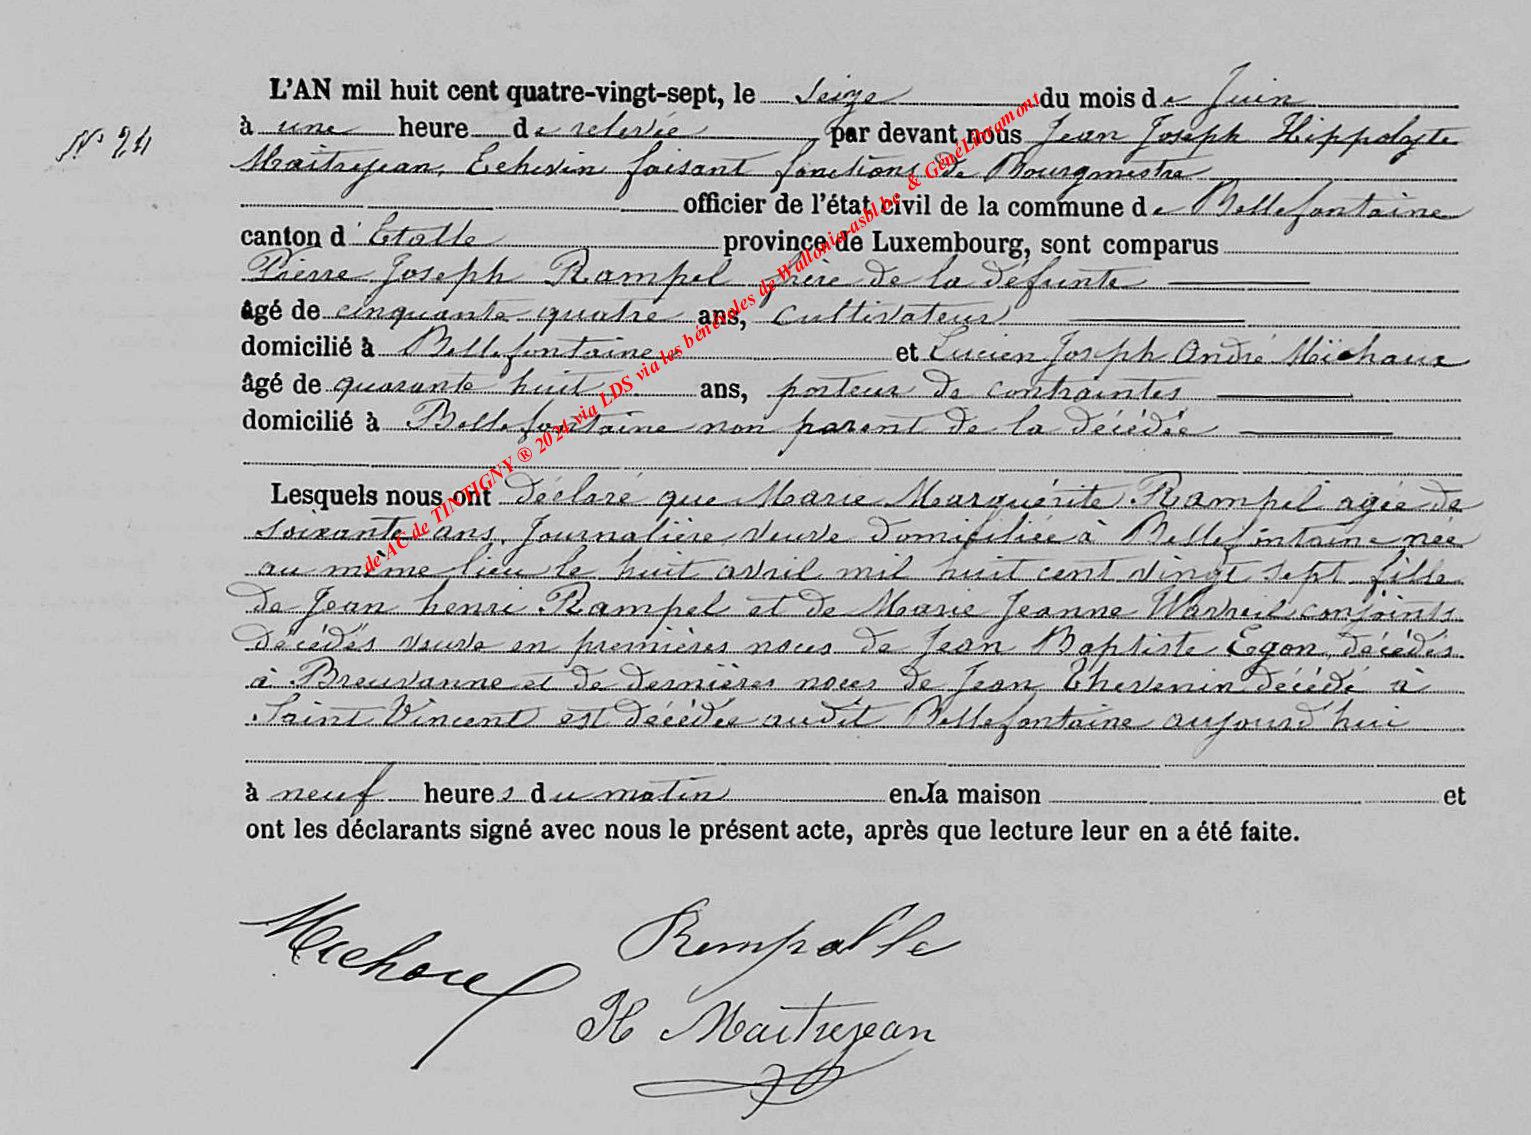 L'AN mil huit cent quatre-vingt-sept, le seize du mois de Juin
N° 24
à une heure de relevée par devant nous Jean Joseph Hippolyte
Maitrejean, Echevin faisant fonctions de Bourgmestre
officier de l'état civil de la commune de Bellefontaine
canton d'Etalle province de Luxembourg, sont comparus
Pierre Joseph Rampel frère de la defunte
âgé de cinquante quatre ans, cultivateur
domicilié à Bellefontaine et Lucien Joseph André Michaux
âgé de quarante huit ans, porteur de contraintes
domicilié à Bellefontaine non parent de la décédée
Lesquels nous ont déclaré que Marie Marguérite Rampel agée de
soixante ans, Journalière veuve domiciliée à Bellefontaine née
au même lieu le huit avril mil huit cent vingt sept fille
de Jean henri Rampel et de Marie Jeanne Wavreil conjoints
décédés veuve en premières noces de Jean Baptiste Egon, décédés
à Breuvanne et de dernières noces de Jean Thevenin décédé à
Saint Vincent est décédée audit Bellefontaine aujourd'hui
à neuf heures du matin en la maison et
ont les déclarants signé avec nous le présent acte, après que lecture leur en a été faite.
Michaux Rempalle
H Maitrejean
de AC de TINTIGNY ® 2024 via LDS via les bénévoles de Wallonia-asbl.be & GénéLibramont